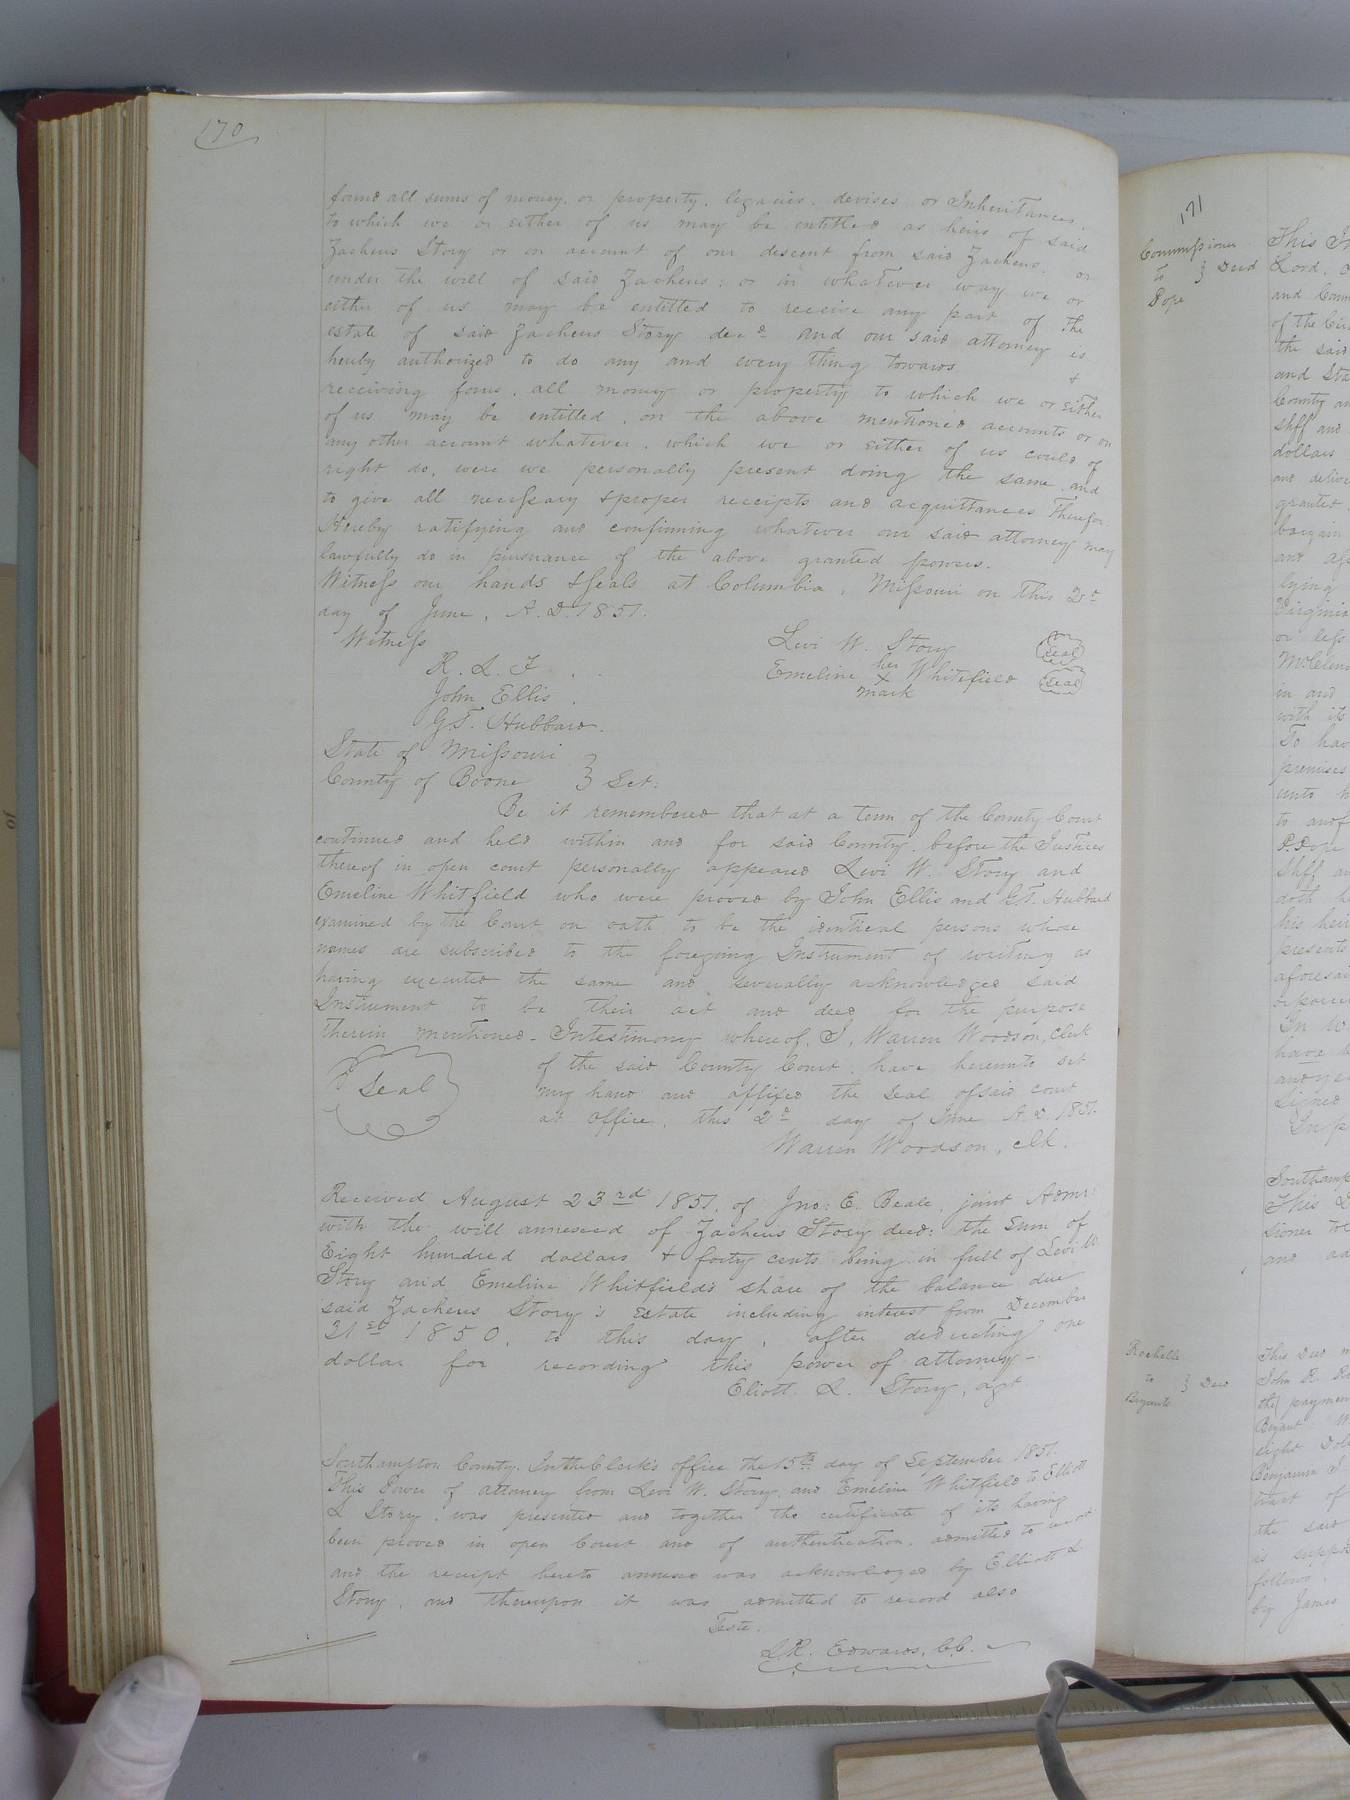 170
found all sums of money, or property, legacies, devises or Inheritances,
to which we or either of us may be entitled as heirs of said
Zacheus Story or on account of our descent from said Zacheus, or
under the will of said Zacheus; or in whatever way we or
either of us may be entitled to receive any part of the
estate of said Zacheus Story decd and our said attorney is
hereby authorized to do any and every thing towards +
receiving for us, all money or property to which we or either
of us may be entitled, on the above mentioned accounts or on
any other account whatever, which we or either of us could of
right do, were we personally present doing the same, and
to give all necessary & proper receipts and acquittances therefor
Hereby ratifying and confirming whatever our said attorney may
lawfully do in pursuance of the above granted powers.
Witness our hands & seals at Columbia, Missouri on this 2d
day of June, A.D. 1851.
Witness
R. L. T
John Ellis.
G.T. Hubbard.
Levi W. Story Seal
Emeline her X mark Whitefield Seal
State of Missouri
County of Boone } Sct.
Be it remembered that at a term of the County Court
continued and held within and for said County, before the Justices
thereof in open court personally appeared Levi W. Story and
Emeline Whitfield who were proved by John Ellis and G.T. Hubbard
examined by the Court on oath to be the identical persons whose
names are subscribed to the foregoing Instrument of writing as
having executed the same and severally acknowledged said
Instrument to be their act and deed for the purpose
therein mentioned - In testimony whereof, I, Warren Woodson, Clerk
of the said County Court, have hereunto set
my hand and affixed the seal of said court
at office, this 2d day of June A.D. 1851.
Seal
Warren Woodson, clk.
Received August 23rd 1851, of Jno: E. Beale, joint Admr:
with the will annexed of Zacheus Story decd: the sum of
Eight hundred dollars & forty cents being in full of Levi W.
Story and Emeline Whitfield's share of the balance due
said Zacheus Story's Estate including interest from December
31st 1850, to this day, after deducting one
dollar for recording this power of attorney -
Eliott L. Story, agt
Southampton County. In the Clerk's office the 15th day of September 1851.
This Power of attorney from Levi W. Story, and Emeline Whitfield to Elliott
L Story, was presented and together the certificate of its having
been proved in open Court and of authentication, admitted to record
and the receipt hereto annexed was acknowledged by Elliott L
Story, and thereupon it was admitted to record also
Teste.
L.R. Edwards, C.C.
171
Commissioner
to } Deed
Pope
This In
Lord, o
of the Cir
the said
and Sta
County an
shff and
dollars
and delive
granted,
bargain
lying
Virginia
or less
in and
with its
To hav
premises
unto
P. Pope
Shff an
doth he
his heir
presents
aforesai
In W
have
Signed
Southamp
This D
sioner to
and
Rochelle
to } Deed
Bryants
This Deed m
John R. Ro
the payment
Bryant
eight Dol
Benjamin J.
tract of
the said
is suppo
follows,
by James